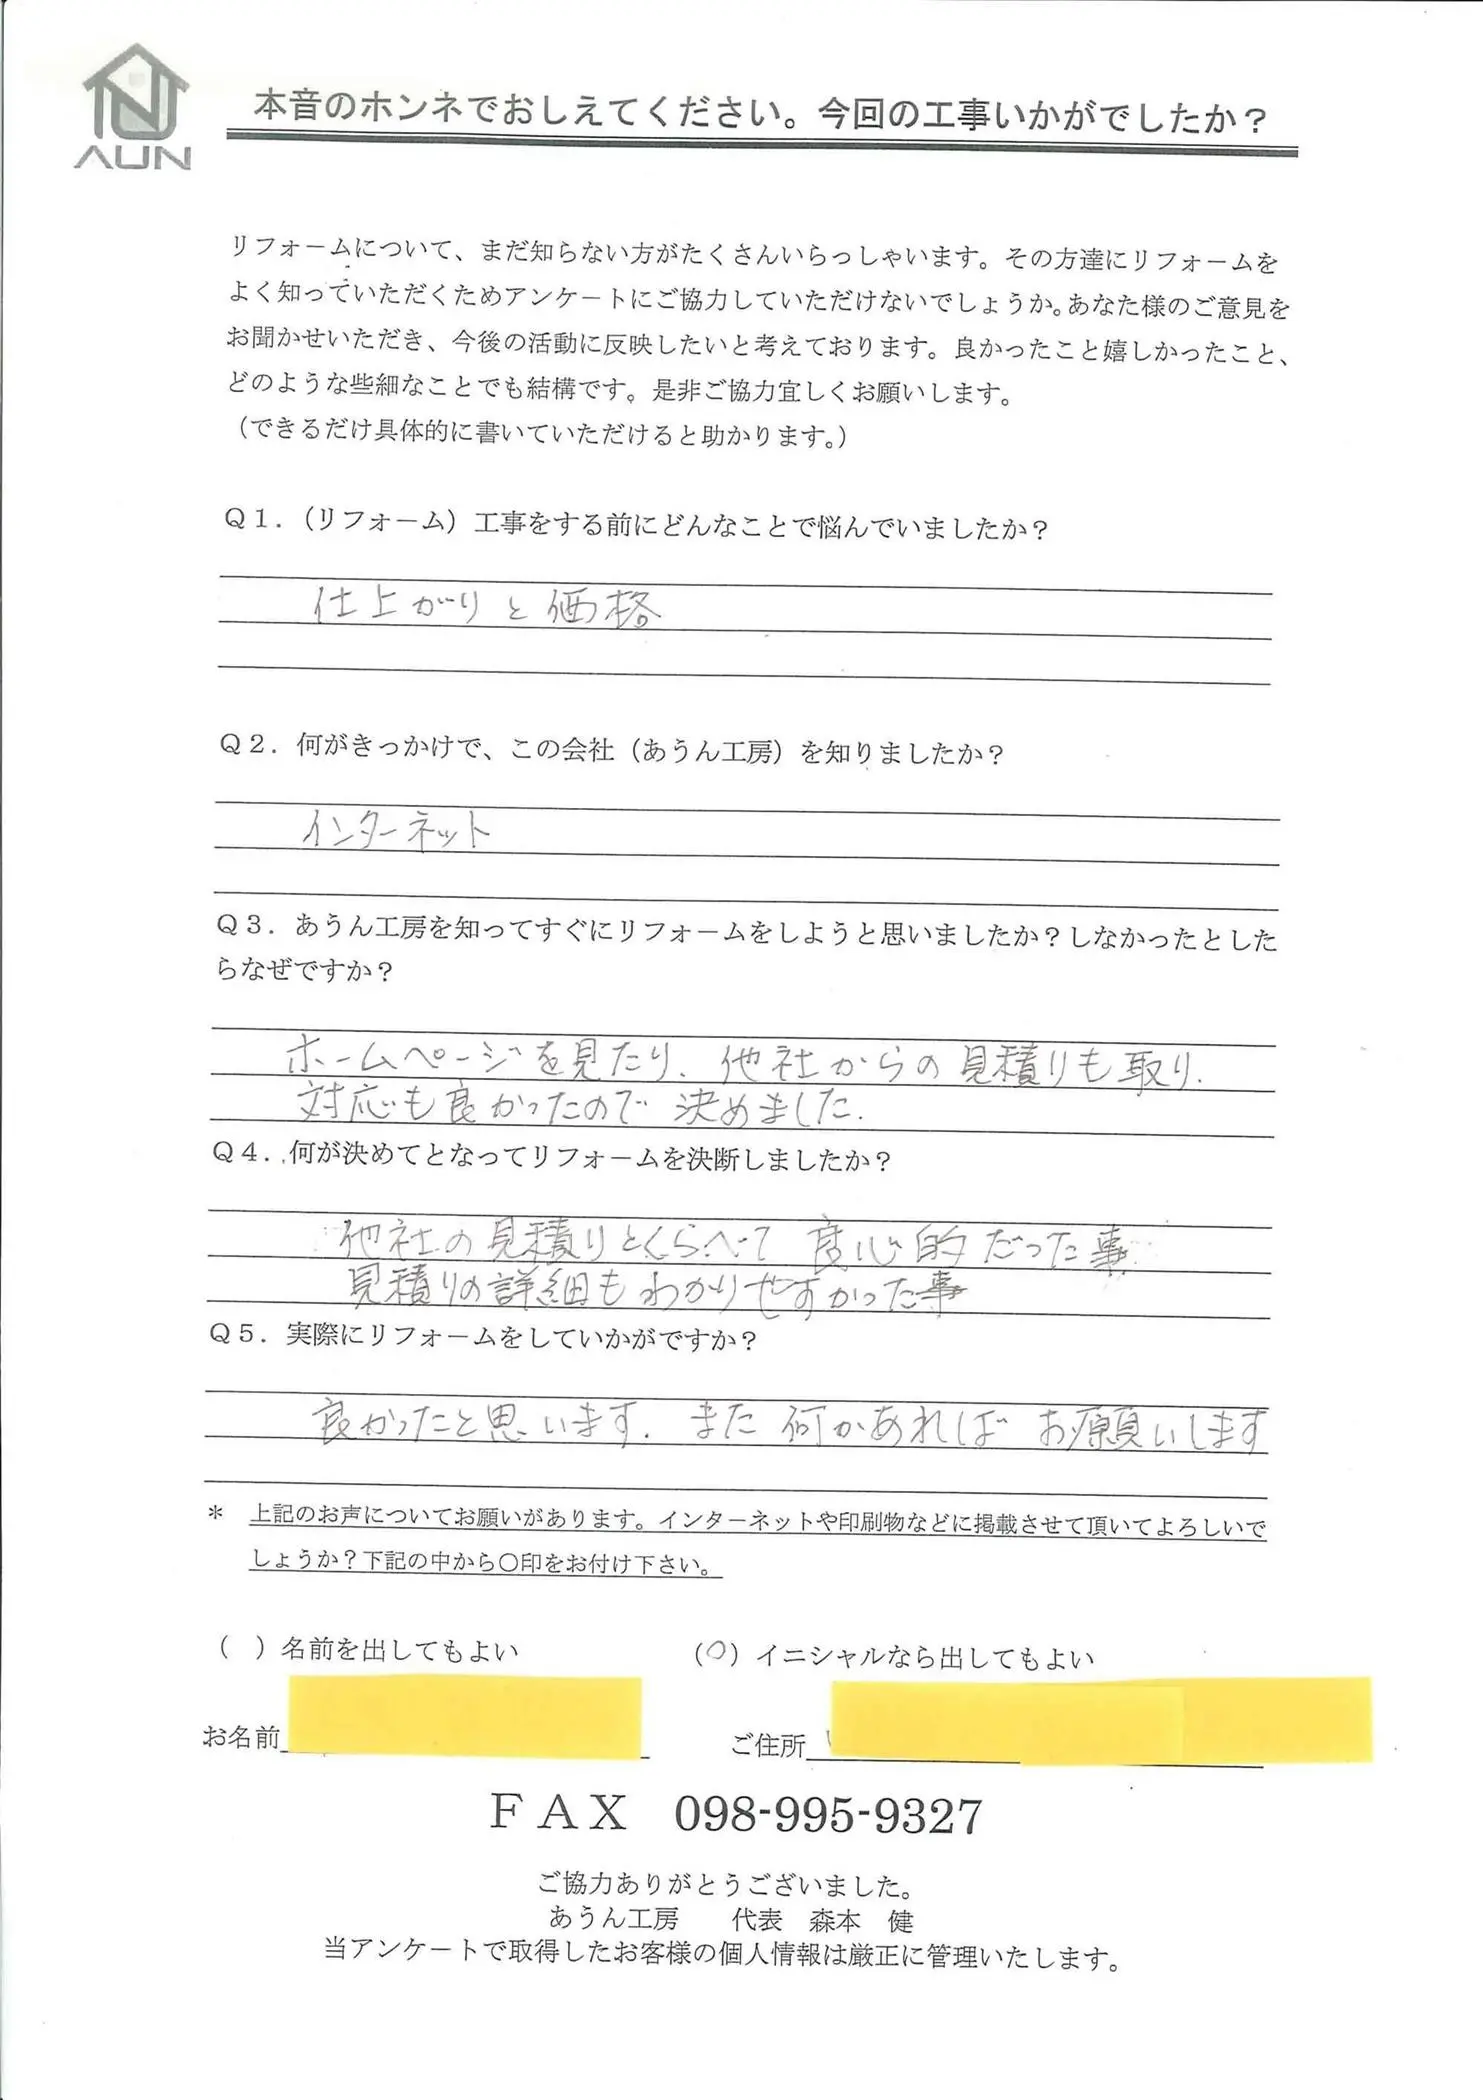 AUN
本音のホンネでおしえてください。今回の工事いかがでしたか？
リフォームについて、まだ知らない方がたくさんいらっしゃいます。その方達にリフォームを
よく知っていただくためアンケートにご協力していただけないでしょうか。あなた様のご意見を
お聞かせいただき、今後の活動に反映したいと考えております。良かったこと嬉しかったこと、
どのような些細なことでも結構です。是非ご協力宜しくお願いします。
（できるだけ具体的に書いていただけると助かります。）
Ｑ１．（リフォーム）工事をする前にどんなことで悩んでいましたか？
仕上がりと価格
Ｑ２．何がきっかけで、この会社（あうん工房）を知りましたか？
インターネット
Ｑ３．あうん工房を知ってすぐにリフォームをしようと思いましたか？しなかったとした
らなぜですか？
ホームページを見たり、他社からの見積りも取り、
対応も良かったので決めました。
Ｑ４．何が決めてとなってリフォームを決断しましたか？
他社の見積りとくらべて良心的だった事
見積りの詳細もわかりやすかった事
Ｑ５．実際にリフォームをしていかがですか？
良かったと思います。また何かあればお願いします
＊　上記のお声についてお願いがあります。インターネットや印刷物などに掲載させて頂いてよろしいで
しょうか？下記の中から〇印をお付け下さい。
（　）名前を出してもよい　（○）イニシャルなら出してもよい
お名前　ご住所
ＦＡＸ　098-995-9327
ご協力ありがとうございました。
あうん工房　代表　森本　健
当アンケートで取得したお客様の個人情報は厳正に管理いたします。